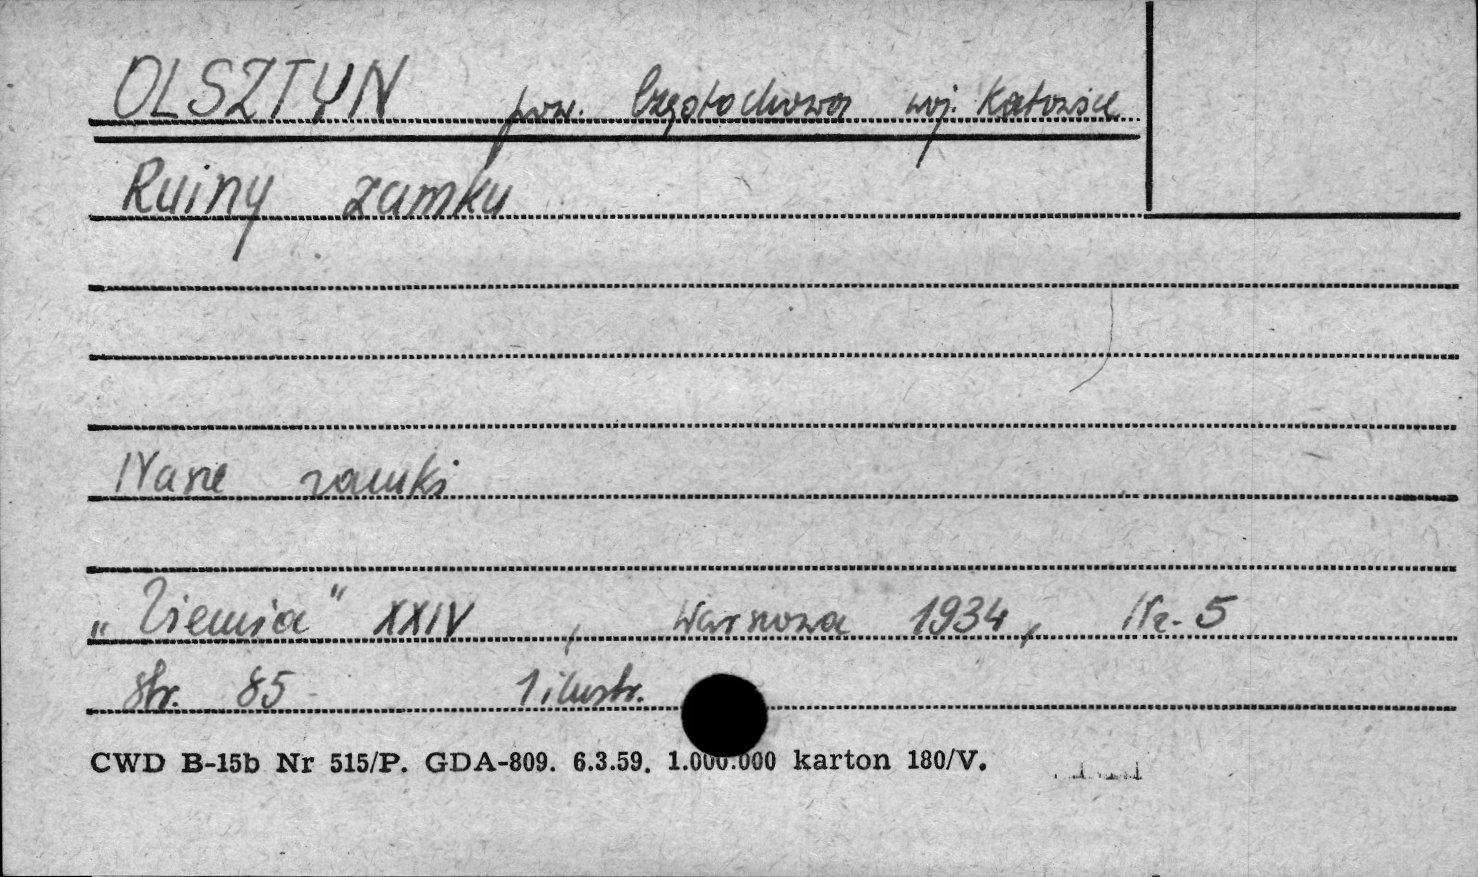 OLSZTYN pow. Częstochowa woj. Katowice
Ruiny zamku
Nasze zamki
„Ziemia" XXIV, Warszawa 1934, Nr. 5
str. 85 1 ilustr.
CWD B-15b Nr 515/P. GDA-809. 6.3.59. 1.000.000 karton 180/V.